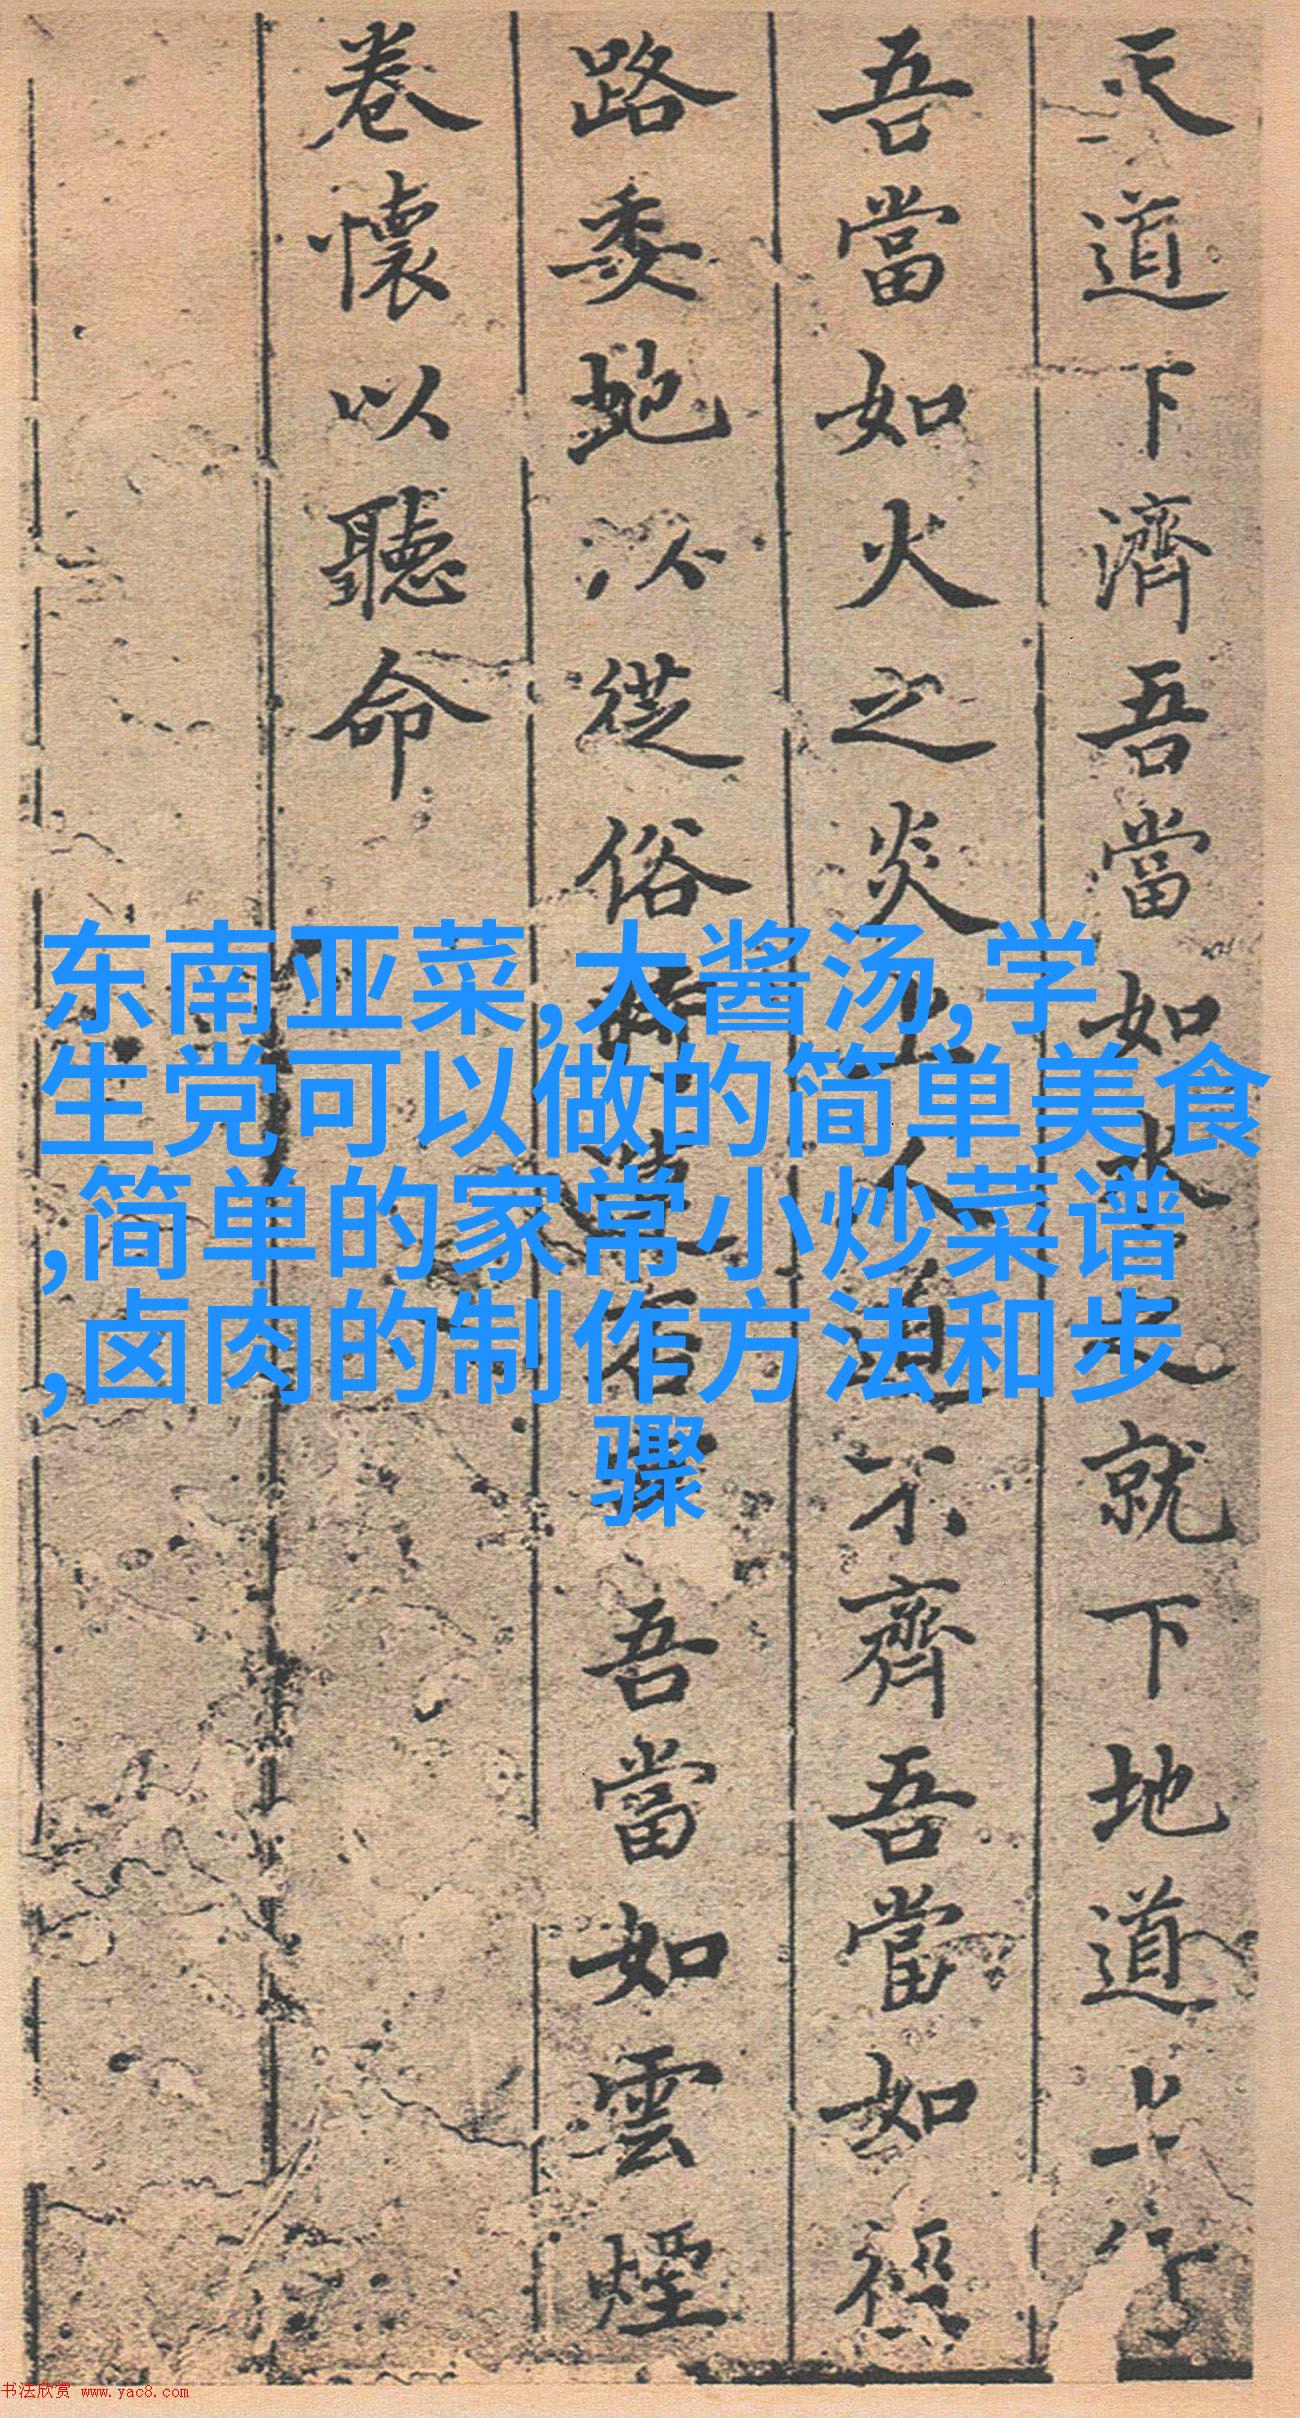 天道下濟吾當如水之就下地道上行
吾當如火之炎上人道不齊吾當如徑
路委蛇以從俗否吾當如雲煙
卷懷以聽命
东南亚菜,大酱汤,学
生党可以做的简单美食
,简单的家常小炒菜谱
,卤肉的制作方法和步
骤
书法欣赏 www.yac8.com